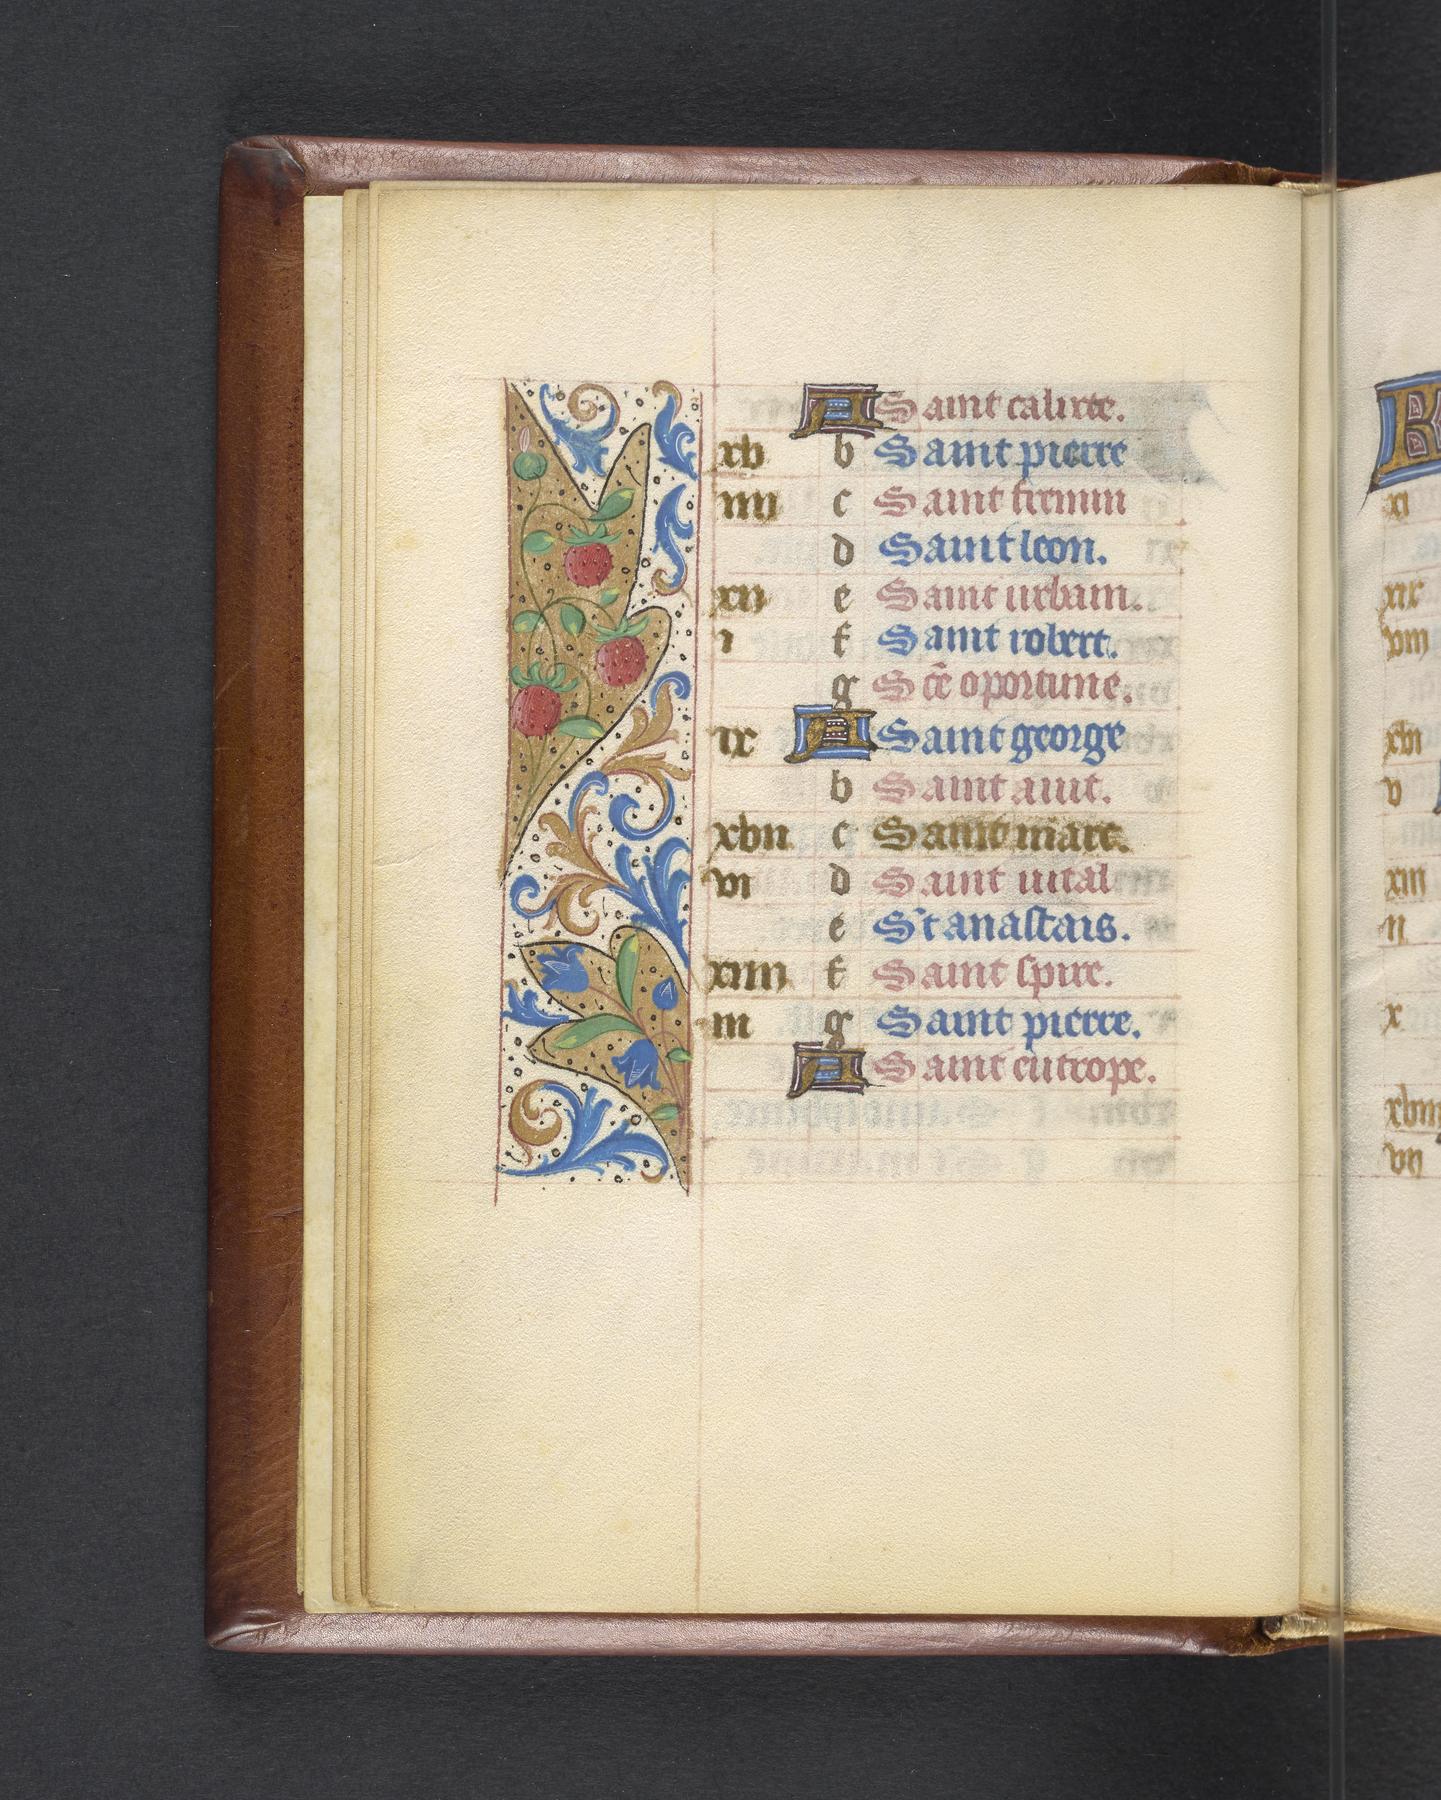 A Saint calixte.
xv b Saint pierre
iiii c Saint firmin
d Saint leon.
xii e Saint urbain.
i f Saint robert.
g Scẽ oportune.
ix A Saint george
b Saint auit.
xvii c Saint marc.
vi d Saint uital
e St anastais.
xiiii f Saint spire.
iii g Saint pierre.
A Saint eutrope.
K
xi
xix
viii
xvi
v
xiii
ii
x
xviii
vii